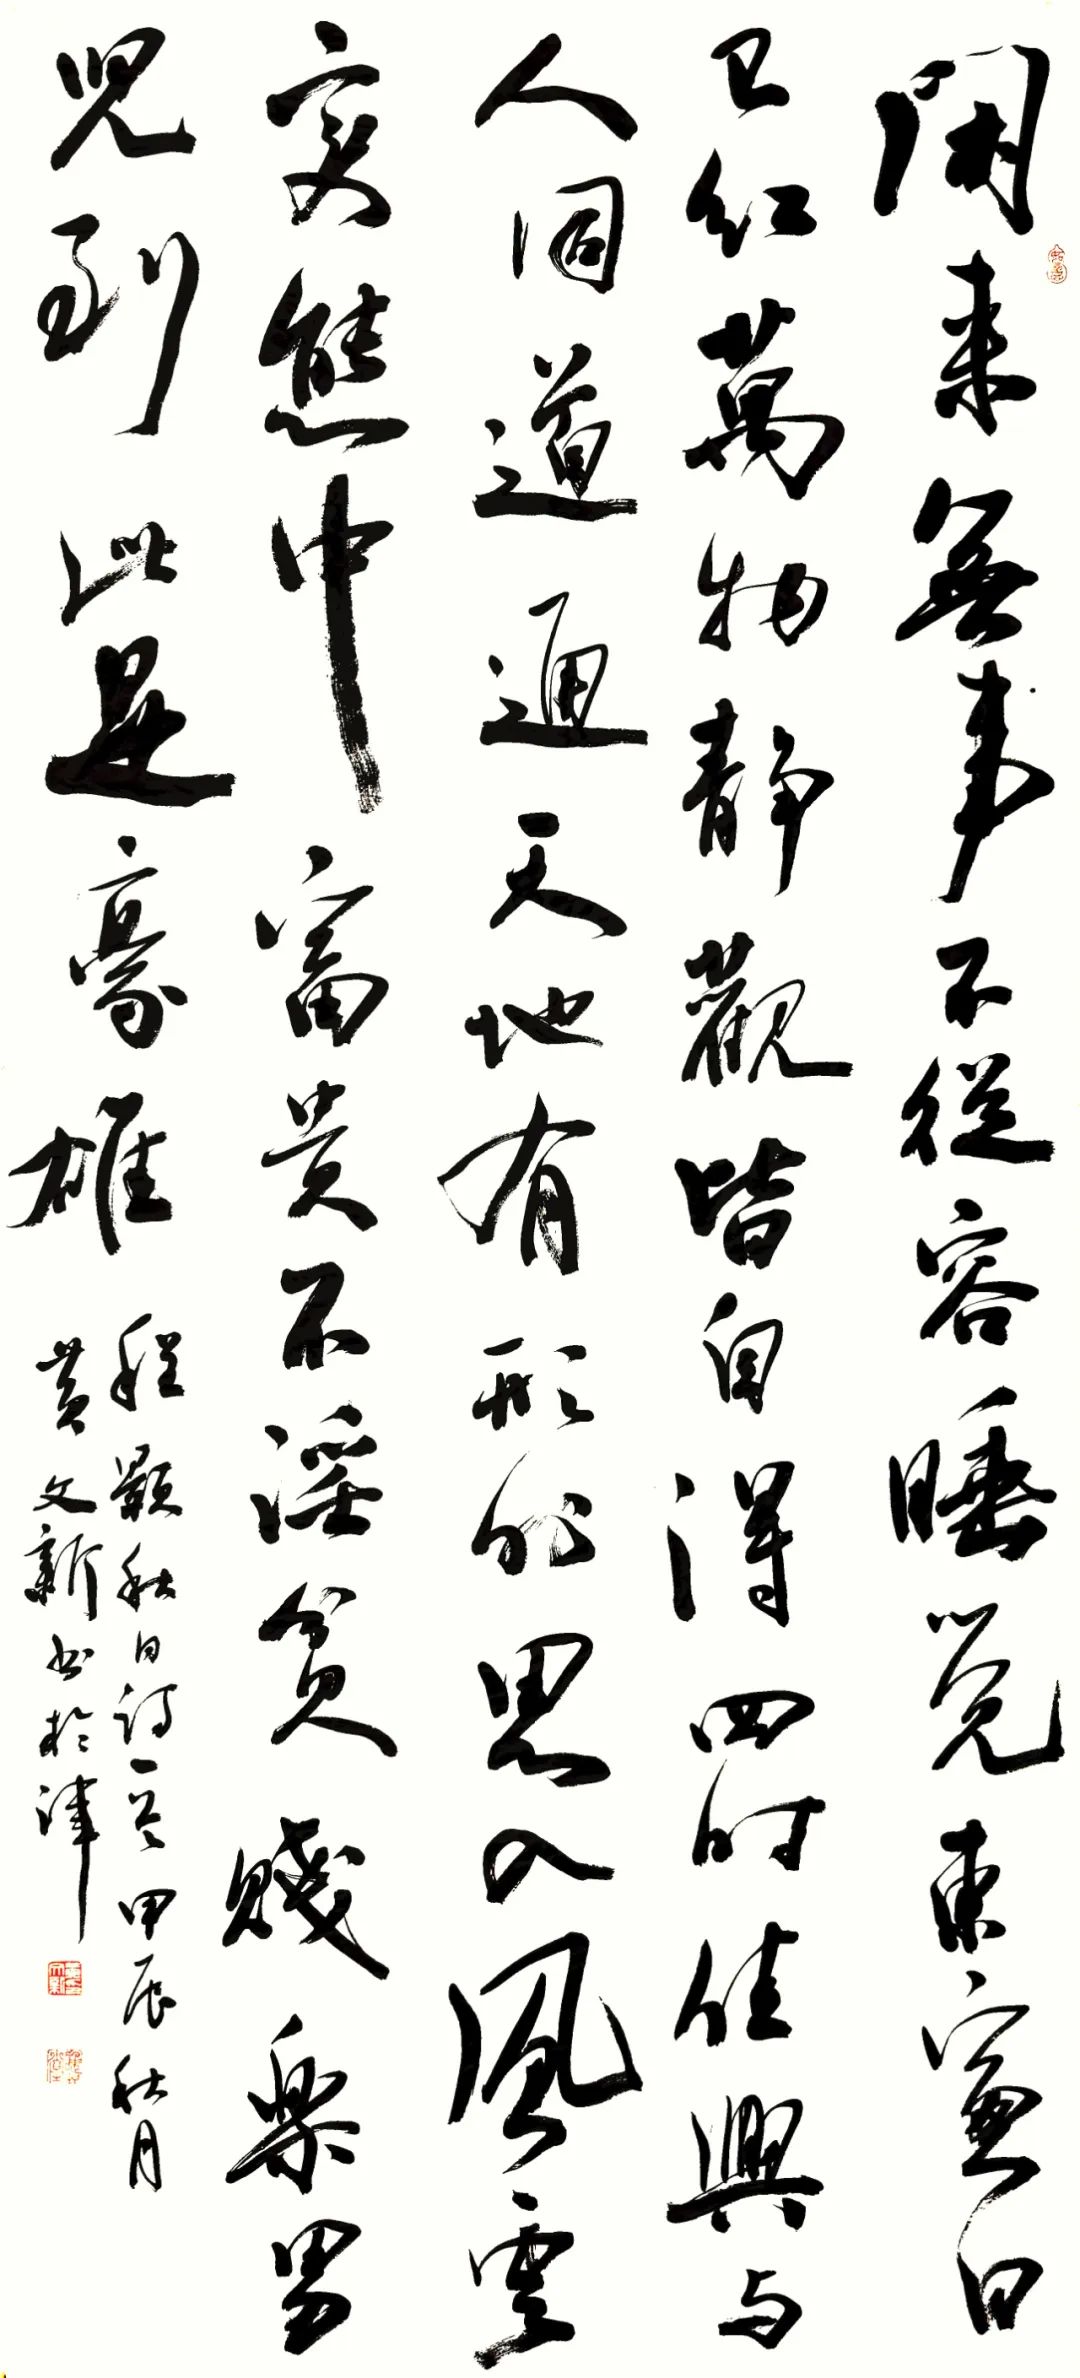 閑来無事不從容睡覺東窗日
已紅萬物静觀皆自得四时佳興与
人同道通天地有形外思入風雲
變態中富貴不淫貧賤樂男
兒到此是豪雄
程顥秋日詩一首甲辰秋月
黄文新書於津